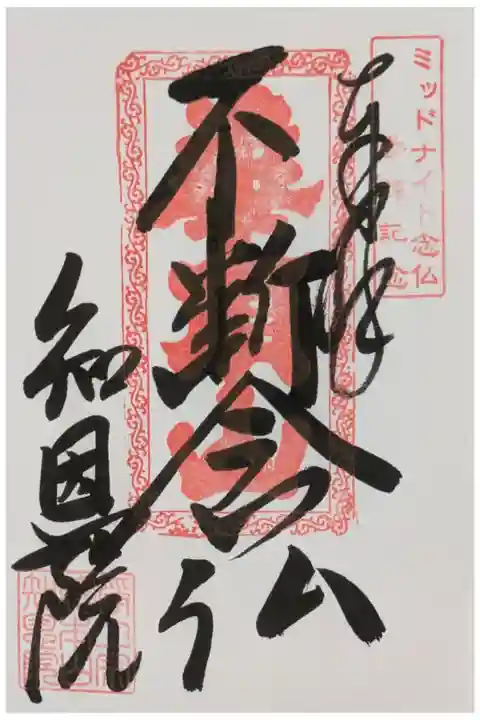 ミッドナイト念仏
記念
奉拝
不断念仏
華頂山
知恩院